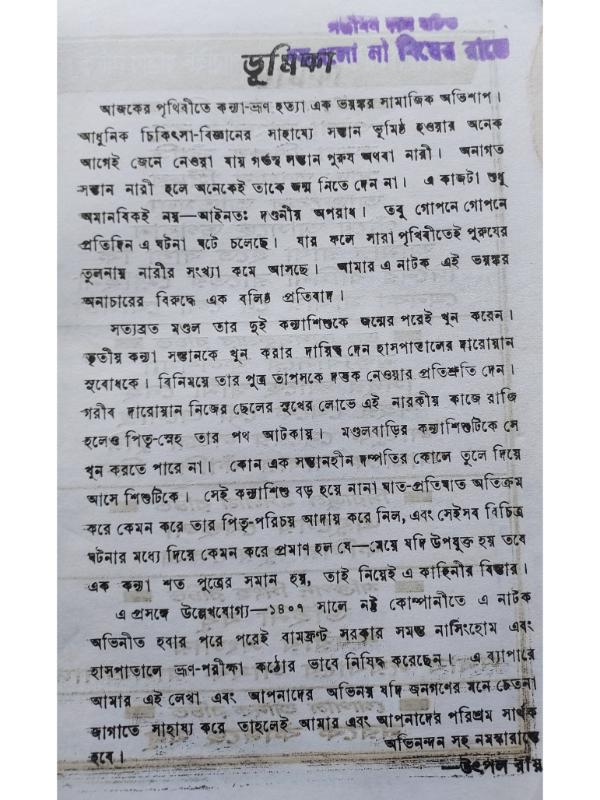 সঞ্জীবন দাস রচিত
না বিয়ের রাতে
ভূমিকা
আজকের পৃথিবীতে কন্যা-ভ্রূণ হত্যা এক ভয়ঙ্কর সামাজিক অভিশাপ।
আধুনিক চিকিৎসা-বিজ্ঞানের সাহায্যে সন্তান ভূমিষ্ঠ হওয়ার অনেক
আগেই জেনে নেওয়া যায় গর্ভস্থ সন্তান পুরুষ অথবা নারী। অনাগত
সন্তান নারী হলে অনেকেই তাকে জন্ম নিতে দেন না। এ কাজটা শুধু
অমানবিকই নয়—আইনতঃ দণ্ডনীয় অপরাধ। তবু গোপনে গোপনে
প্রতিদিন এ ঘটনা ঘটে চলেছে। যার ফলে সারা পৃথিবীতেই পুরুষের
তুলনায় নারীর সংখ্যা কমে আসছে। আমার এ নাটক এই ভয়ঙ্কর
অনাচারের বিরুদ্ধে এক বলিষ্ঠ প্রতিবাদ।
সত্যব্রত মণ্ডল তার দুই কন্যাশিশুকে জন্মের পরেই খুন করেন।
তৃতীয় কন্যা সন্তানকে খুন করার দায়িত্ব দেন হাসপাতালের দারোয়ান
সুবোধকে। বিনিময়ে তার পুত্র তাপসকে দত্তক নেওয়ার প্রতিশ্রুতি দেন।
গরীব দারোয়ান নিজের ছেলের সুখের লোভে এই নারকীয় কাজে রাজি
হলেও পিতৃ-স্নেহ তার পথ আটকায়। মণ্ডলবাড়ির কন্যাশিশুটিকে সে
খুন করতে পারে না। কোন এক সন্তানহীন দম্পতির কোলে তুলে দিয়ে
আসে শিশুটিকে। সেই কন্যাশিশু বড় হয়ে নানা ঘাত-প্রতিঘাত অতিক্রম
করে কেমন করে তার পিতৃ-পরিচয় আদায় করে নিল, এবং সেইসব বিচিত্র
ঘটনার মধ্যে দিয়ে কেমন করে প্রমাণ হল যে—মেয়ে যদি উপযুক্ত হয় তবে
এক কন্যা শত পুত্রের সমান হয়, তাই নিয়েই এ কাহিনীর বিস্তার।
এ প্রসঙ্গে উল্লেখযোগ্য—১৪০৭ সালে নট্ট কোম্পানীতে এ নাটক
অভিনীত হবার পরে পরেই বামফ্রন্ট সরকার সমস্ত নার্সিংহোম এবং
হাসপাতালে ভ্রূণ-পরীক্ষা কঠোর ভাবে নিষিদ্ধ করেছেন। এ ব্যাপারে
আমার এই লেখা এবং আপনাদের অভিনয় যদি জনগণের মনে চেতনা
জাগাতে সাহায্য করে তাহলেই আমার এবং আপনাদের পরিশ্রম সার্থক
হবে।
অভিনন্দন সহ নমস্কারান্তে
—উৎপল রায়